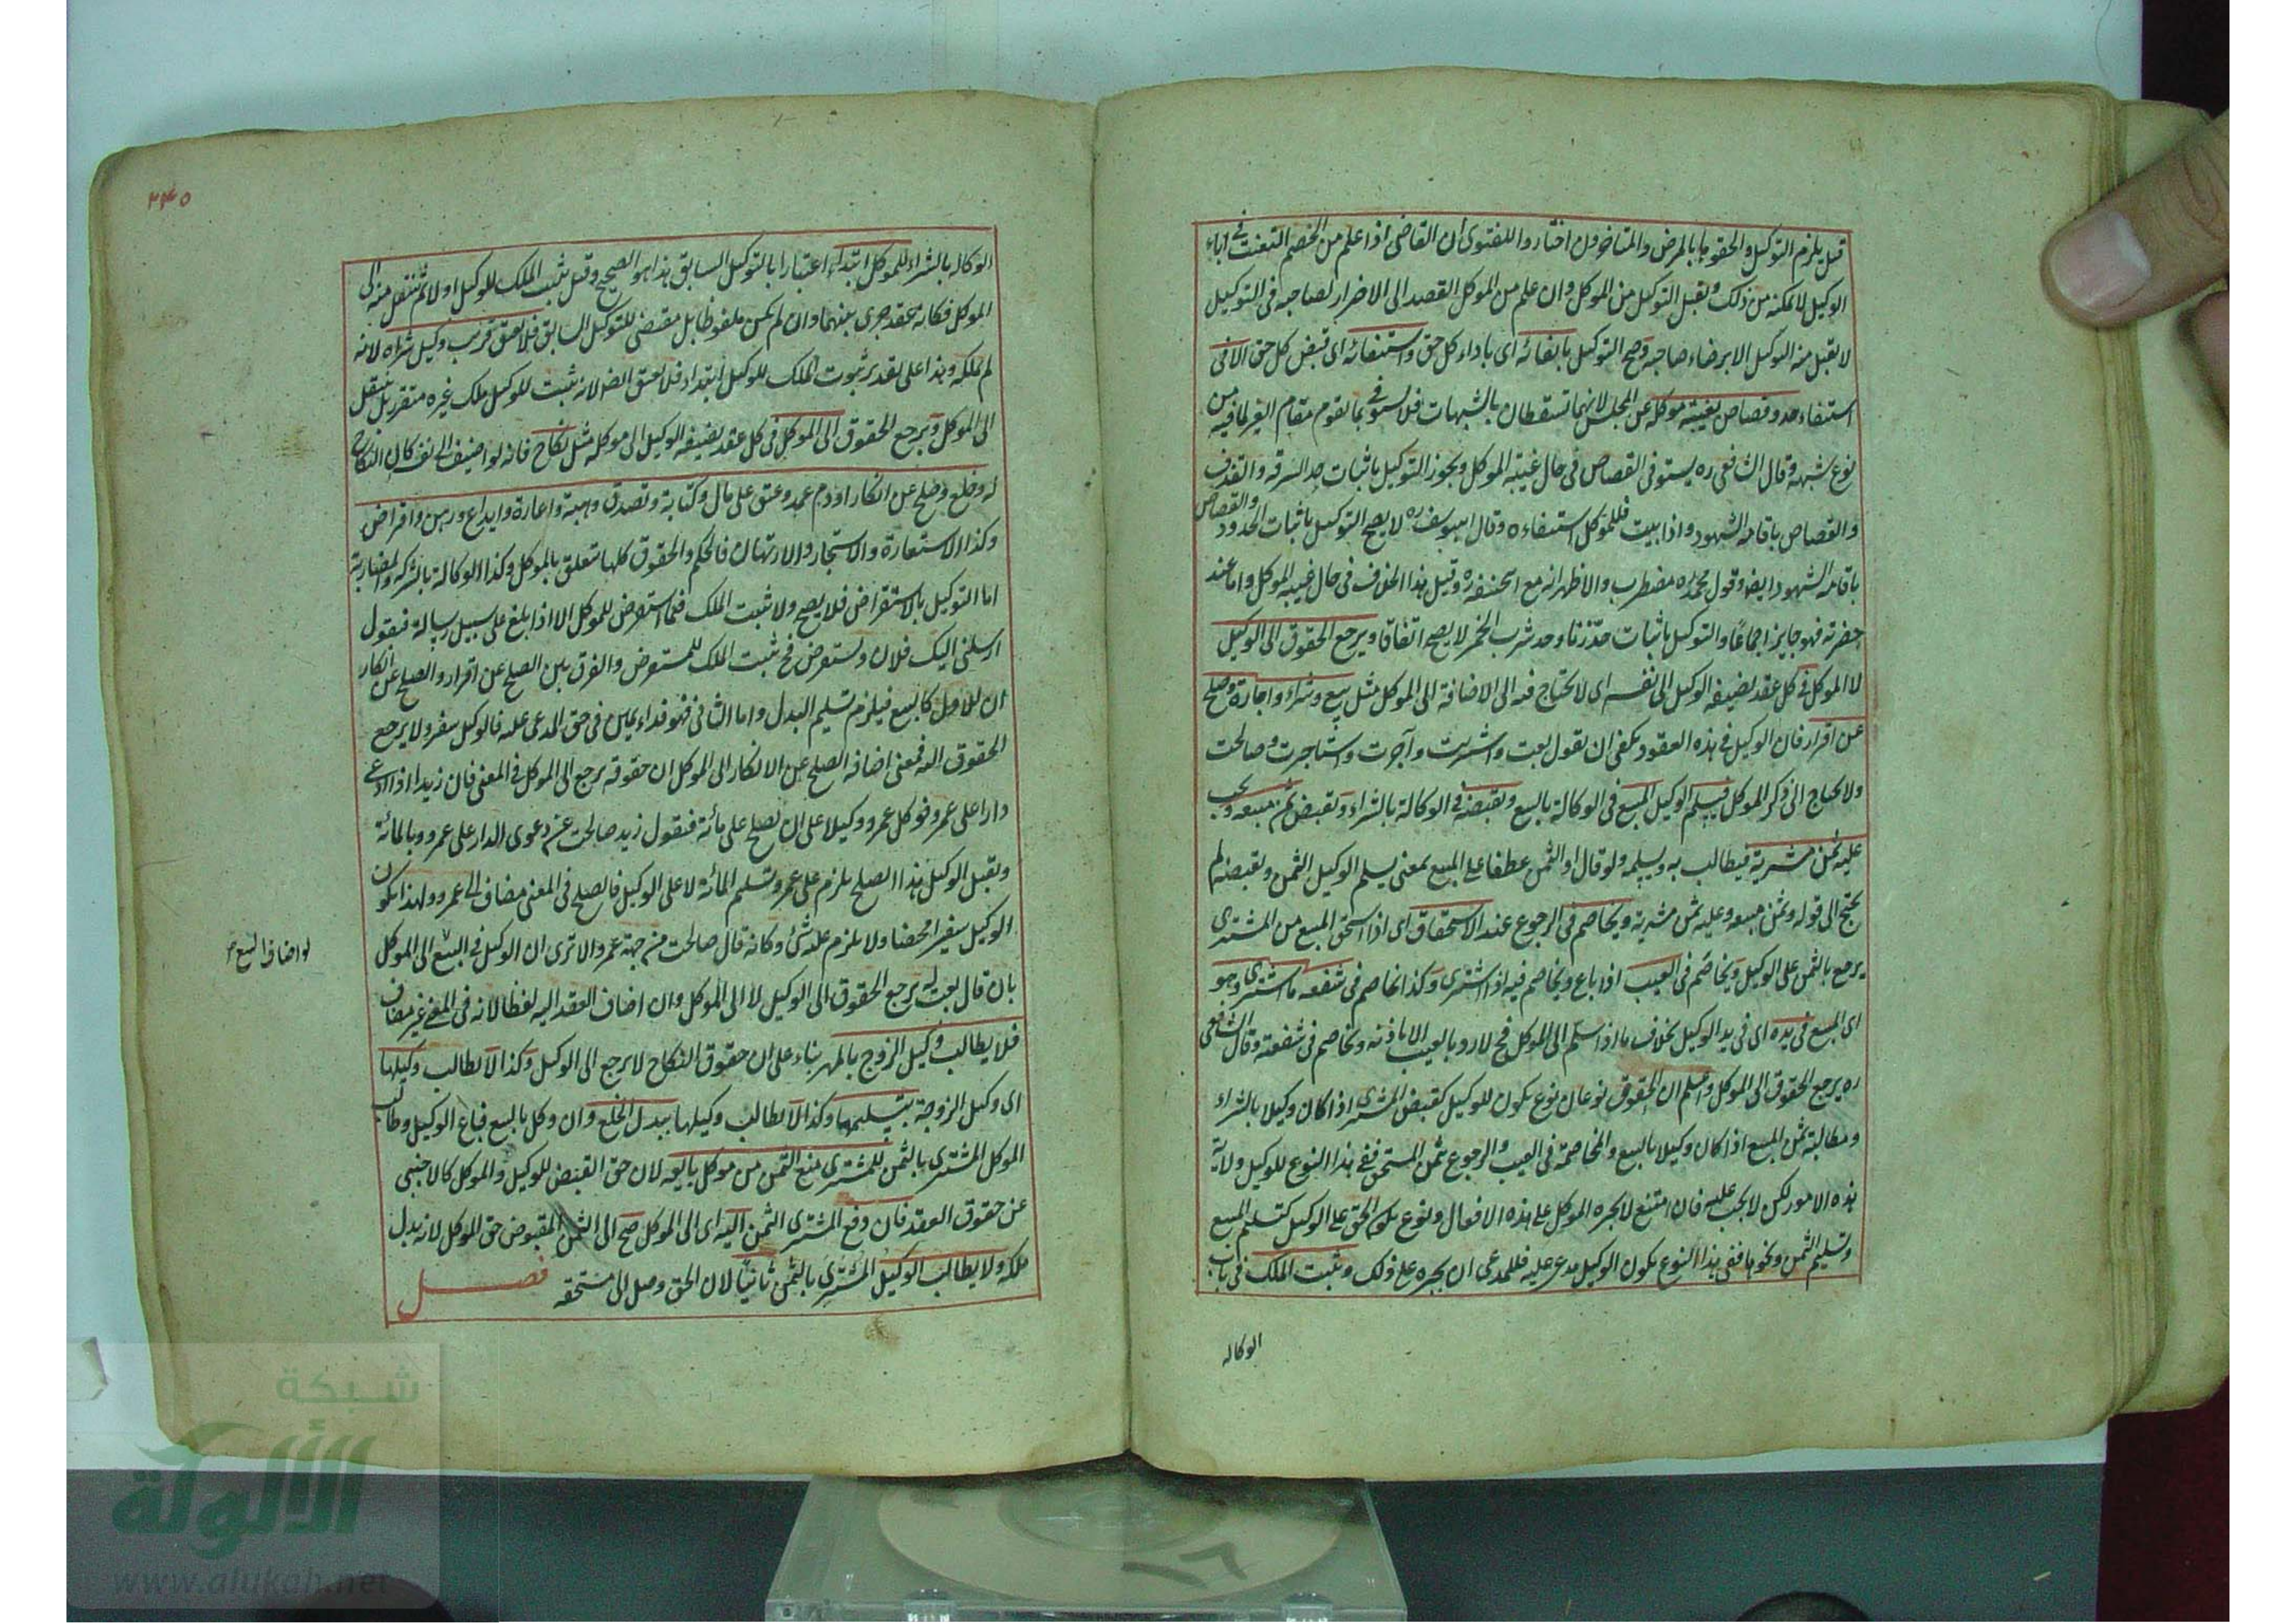 قيل يلزم التوكيل والحقوها بالمرض والمتاخرون اختاروا للفتوى ان القاضى اذا علم من الخصم التعنت فى اباء
الوكيل لا يمكنه من ذلك ويقبل التوكيل من الموكل وان علم من الموكل القصد الى الاضرار لصاحبه فى التوكيل
لا يقبل منه التوكيل الا برضاء صاحبه وصح التوكيل بايفائه اى باداء كل حق واستيفائه اى قبض كل حق الا فى
استيفاء حد وقصاص بغيبة موكله عن المجلس لانهما تسقطان بالشبهات فلا يستوفى بما يقوم مقام الغير لما فيه من
نوع شبهة وقال الشافعى ره يستوفى القصاص فى حال غيبة الموكل ويجوز التوكيل باثبات حد السرقة والقذف
والقصاص باقامة الشهود واذا ثبت فللموكل استيفاءه وقال ابو يوسف ره لا يصح التوكيل باثبات الحدود والقصاص
باقامة الشهود ايضا وقول محمد ره مضطرب والاظهر انه مع ابيحنيفة ره وقيل هذا الخلاف فى حال غيبة الموكل واما عند
حضرته فهو جايز اجماعا والتوكيل باثبات حد زنا وحد شرب الخمر لا يصح اتفاقا ويرجع الحقوق الى الوكيل
لا الموكل فى كل عقد يضيفه الوكيل الى نفسه اى لا يحتاج فيه الى الاضافة الى الموكل مثل بيع وشراء واجارة وصلح
عن اقرار فان الوكيل فى هذه العقود يكفى ان يقول بعت واشتريت وآجرت واستاجرت وصالحت
ولا يحتاج الى ذكر الموكل فيسلم الوكيل المبيع فى الوكالة بالبيع ويقبضه فى الوكالة بالشراء ويقبض ثمن مبيعه ويجب
عليه ثمن مشريه فيطالب به ويسلمه ولو قال او الثمن عطفا على المبيع بمعنى يسلم الوكيل الثمن ويقبضه لم
يحتج الى قوله وثمن مبيعه وعليه ثمن مشريه ويخاصم فى الرجوع عند الاستحقاق اى اذا استحق المبيع من المشترى
يرجع بالثمن على الوكيل ويخاصم فى العيب اذا باع ويخاصم فيه اذا اشترى وكذا يخاصم فى شفعة ما اشترى وهو
اى المبيع فى يده اى فى يد الوكيل بخلاف ما اذا سلم الى الموكل فح لا رد بالعيب الا باذنه ويخاصم فى شفعته وقال الشافعى
ره يرجع الحقوق الى الموكل واعلم ان الحقوق نوعان نوع يكون للوكيل كقبض المشترى اذا كان وكيلا بالشراء
ومطالبة ثمن المبيع اذا كان وكيلا بالبيع والمخاصمة فى العيب والرجوع بثمن المستحق ففى هذا النوع للوكيل ولاية
هذه الامور لكن لا يجب عليه فان امتنع لا يجبره الموكل على هذه الافعال ونوع يكون الحق على الوكيل كتسليم المبيع
وتسليم الثمن ونحوها ففى هذا النوع يكون الوكيل مدعى عليه فللمدعى ان يجبره على ذلك ويثبت الملك فى باب
الوكاله
٢٤٥
الوكاله بالشراء للموكل ابتداء اعتبارا بالتوكيل السابق هذا هو الصحيح وقيل يثبت الملك للوكيل اولا ثم ينتقل منه الى
الموكل فكانه عقد جرى بينهما وان لم يكن ملفوظا بل مقتضى للتوكيل السابق فلا يعتق قريب وكيل شراه لانه
لم يملكه وهذا على تقدير ثبوت الملك للوكيل ابتداء فلا يعتق ايضا لانه يثبت للوكيل ملك غير متقرر بل ينتقل
الى الموكل ويرجع الحقوق الى الموكل فى كل عقد يضيفه الوكيل الى موكله مثل نكاح فانه لو اضيف الى نفسه كان النكاح
له وخلع وصلح عن انكار او دم عمد وعتق على مال وكتابة وتصدق وهبة واعارة وايداع ورهن واقراض
وكذا الاستعارة والاستجار والارتهان فالحكم والحقوق كلها تتعلق بالموكل وكذا الوكالة بالشركة والمضاربة
اما التوكيل بالاستقراض فلا يصح ولا يثبت الملك فيما استقرض للموكل الا اذا بلغ على سبيل رسالة فيقول
ارسلنى اليك فلان ويستقرض فح يثبت الملك للمستقرض والفرق بين الصلح عن اقرار والصلح عن انكار
ان للاول كالبيع فيلزم تسليم البدل واما الثانى فهو فداء يمين فى حق المدعى عليه فالوكيل سفير ولا يرجع
الحقوق اليه فمعنى اضافة الصلح عن الانكار الى الموكل ان حقوقه يرجع الى الموكل فى المعنى فان زيدا اذا ادعى
دارا على عمرو فوكل عمرو وكيلا على ان يصلح على مائة فيقول زيد صالحت عن دعوى الدار على عمرو بالمائة
ويقبل الوكيل هذا الصلح يلزم على عمرو تسليم المائة لا على الوكيل فالصلح فى المعنى مضاف الى عمرو ولهذا يكون
الوكيل سفيرا محضا ولا يلزم عليه شئ وكانه قال صالحت من جهة عمرو الا ترى ان الوكيل فى البيع الى الموكل
لو اضاف البيع
بان قال بعت له يرجع الحقوق الى الوكيل لا الى الموكل وان اضاف العقد اليه لفظا لانه فى المعنى غير مضاف
فلا يطالب وكيل الزوج بالمهر بناء على ان حقوق النكاح لا يرجع الى الوكيل وكذا لا يطالب وكيلها
اى وكيل الزوجة بتسليمها وكذا لا يطالب وكيلها ببدل الخلع وان وكل بالبيع فباع الوكيل وطالب
الموكل المشترى بالثمن للمشترى منع الثمن من موكل بايعه لان حق القبض للوكيل والموكل كالاجنبى
عن حقوق العقد فان دفع المشترى الثمن اليه اى الى الموكل صح الى الثمن المقبوض حق للموكل لانه بدل
ملكه ولا يطالب الوكيل المشترى بالثمن ثانيا لان الحق وصل الى مستحقه فصل
شبكة
الألوكة
www.alukah.net